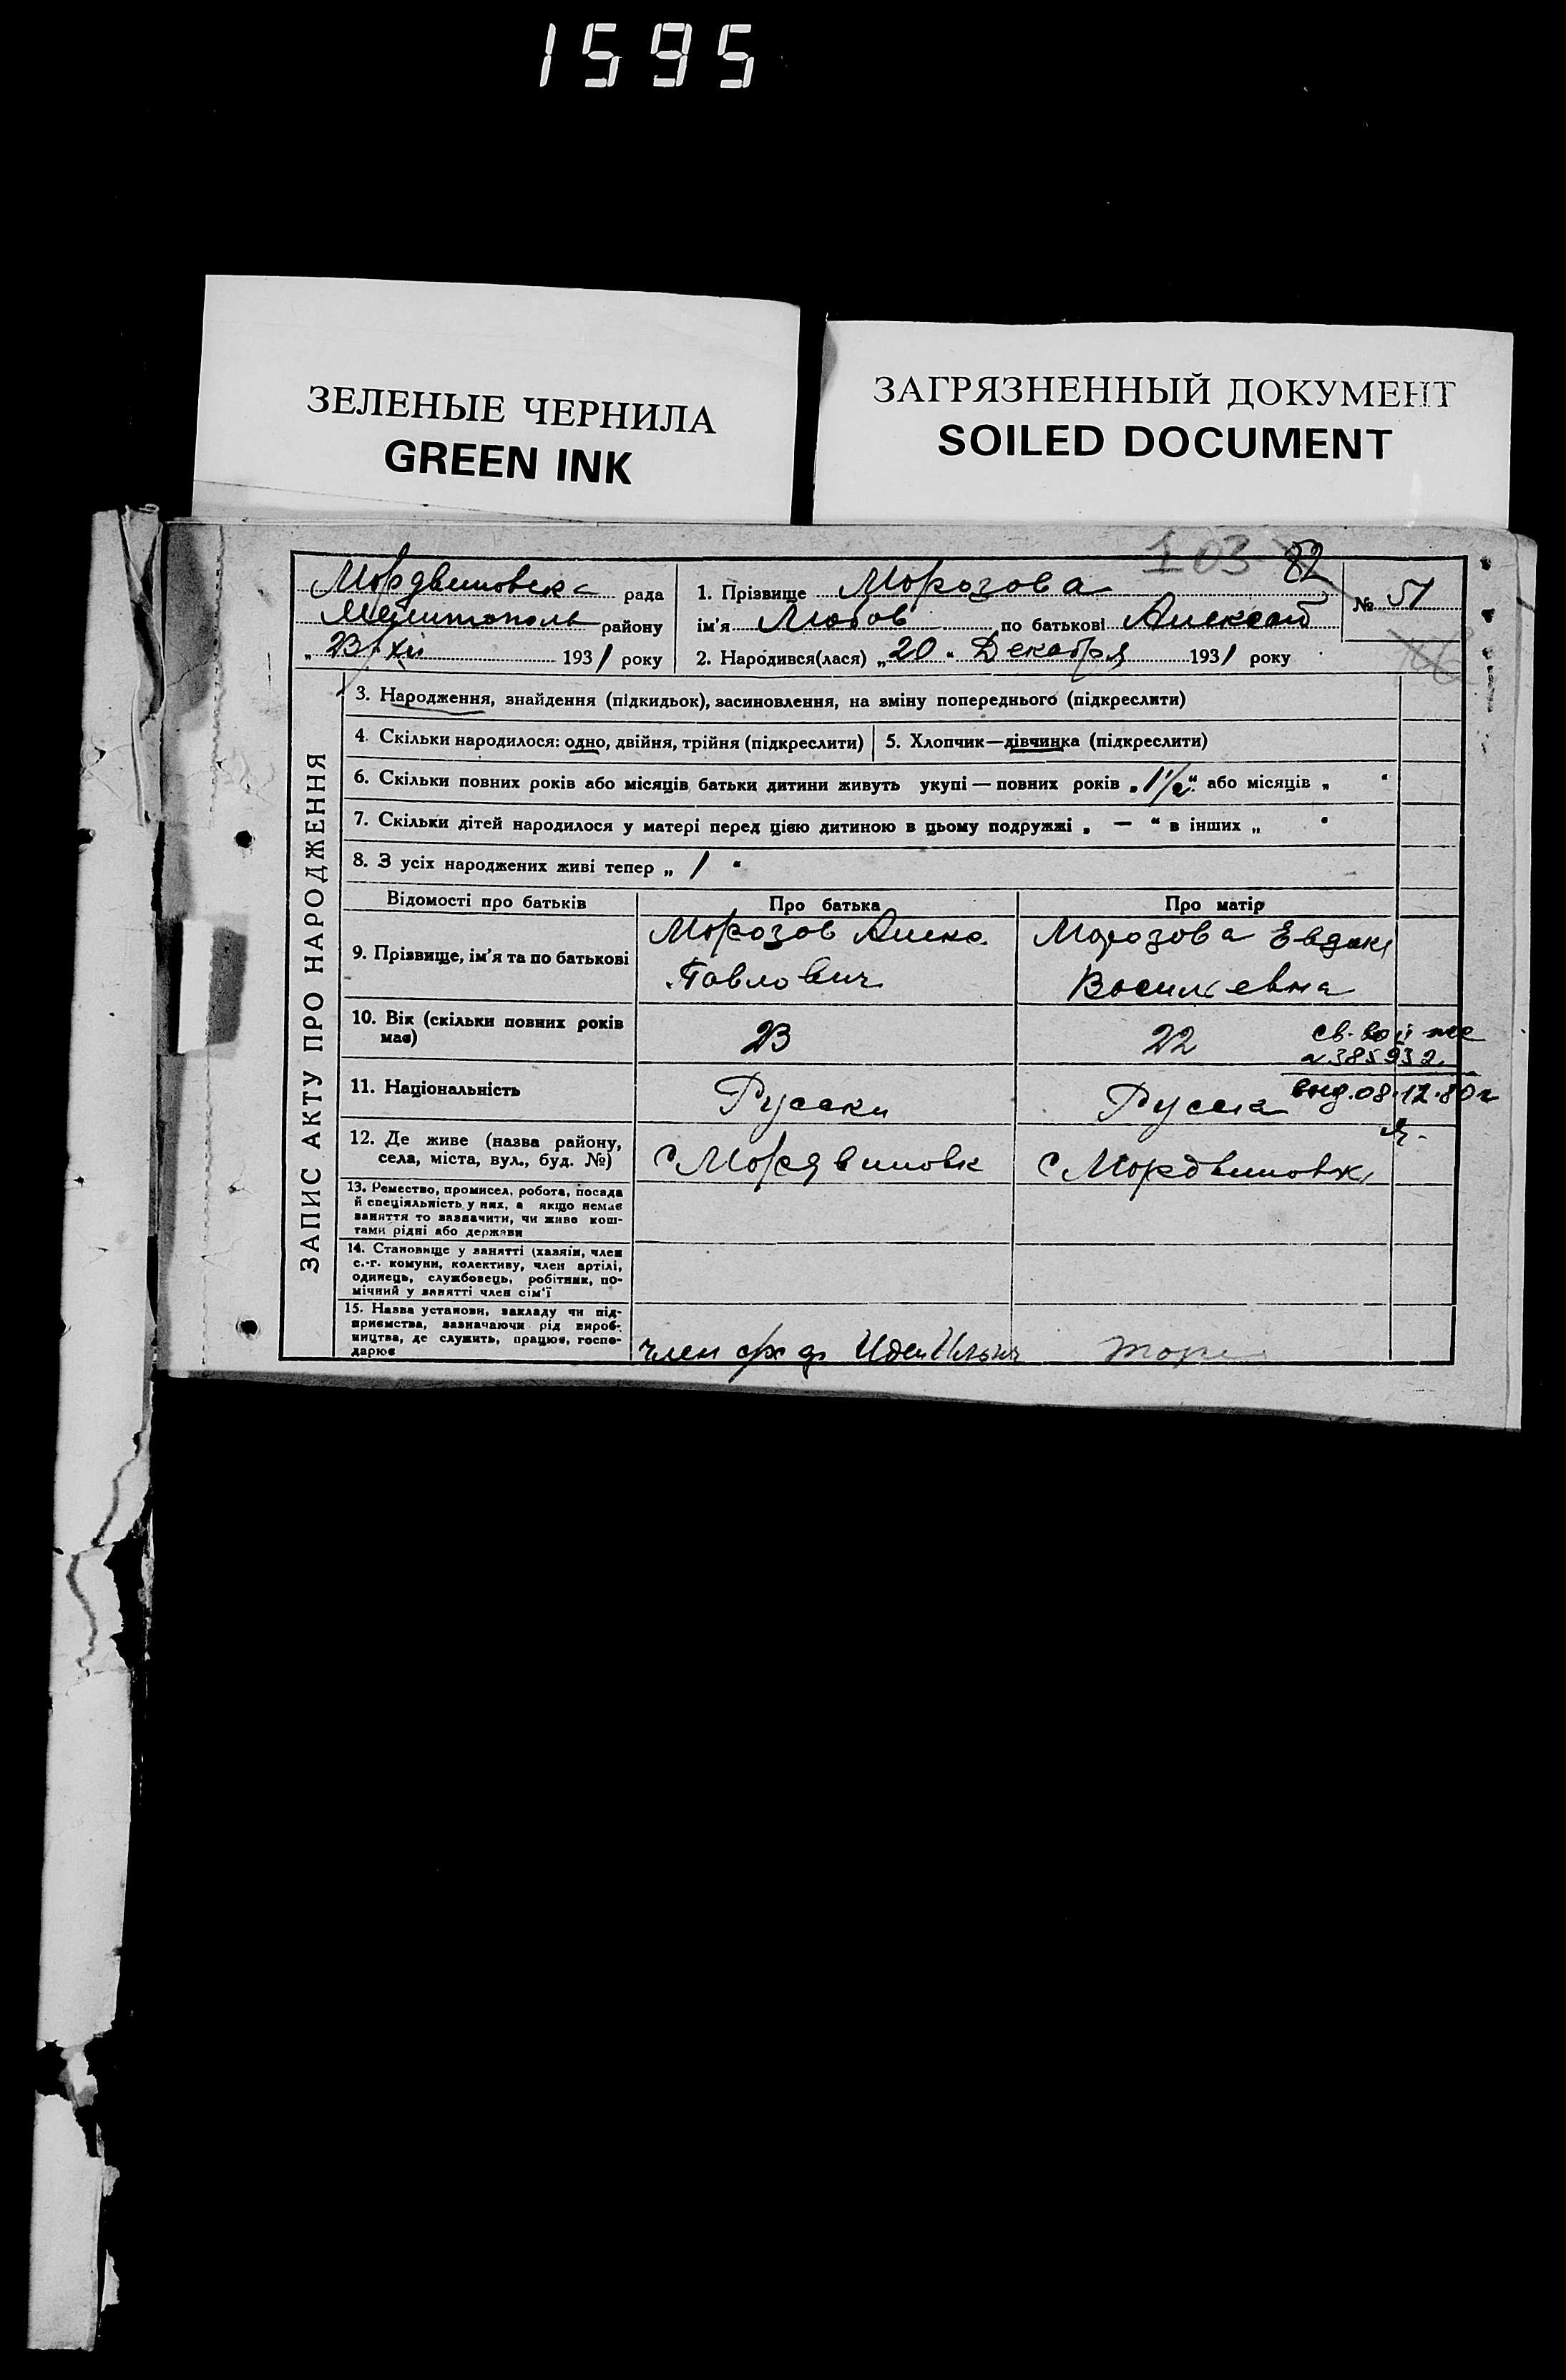 1595
ЗЕЛЕНЫЕ ЧЕРНИЛА
GREEN INK
ЗАГРЯЗНЕННЫЙ ДОКУМЕНТ
SOILED DOCUMENT
103 82
Мордвиновска рада
Мелитополь району
„23/XII 1931 року
1. Прізвище Морозова
ім'я Любов по батькові Алексан
2. Народився(лася) „20„ Декабря 1931 року
№ 51
ЗАПИС АКТУ ПРО НАРОДЖЕННЯ
3. Народження, знайдення (підкидьок), засиновлення, на зміну попереднього (підкреслити)
4. Скільки народилося: одно, двійня, трійня (підкреслити) 5. Хлопчик—дівчинка (підкреслити)
6. Скільки повних років або місяців батьки дитини живуть укупі — повних років „1½“ або місяців „ “
7. Скільки дітей народилося у матері перед цією дитиною в цьому подружжі „ — “ в інших „ “
8. З усіх народжених живі тепер „ 1 “
Відомості про батьків Про батька Про матір
9. Прізвище, ім'я та по батькові
Морозов Алекс.
Павлович
Морозова Евдоки
Васильевна
10. Вік (скільки повних років
має)
23 22
св-во
385932
выд. 08.12.80г
11. Національність Русски Русска
12. Де живе (назва району,
села, міста, вул., буд. №)
с Мордвиновк с Мордвиновк
13. Ремество, промисел, робота, посада
й спеціяльність у них, а якщо немає
заняття то зазначити, чи живе кош-
тами рідні або держави
14. Становище у занятті (хазяїн, член
с.-г. комуни, колективу, член артілі,
одинець, службовець, робітник, по-
мічний у занятті член сім'ї
15. Назва установи, закладу чи під-
приємства, зазначаючи рід вироб-
ництва, де служить, працює, госпо-
дарює
член Ильич